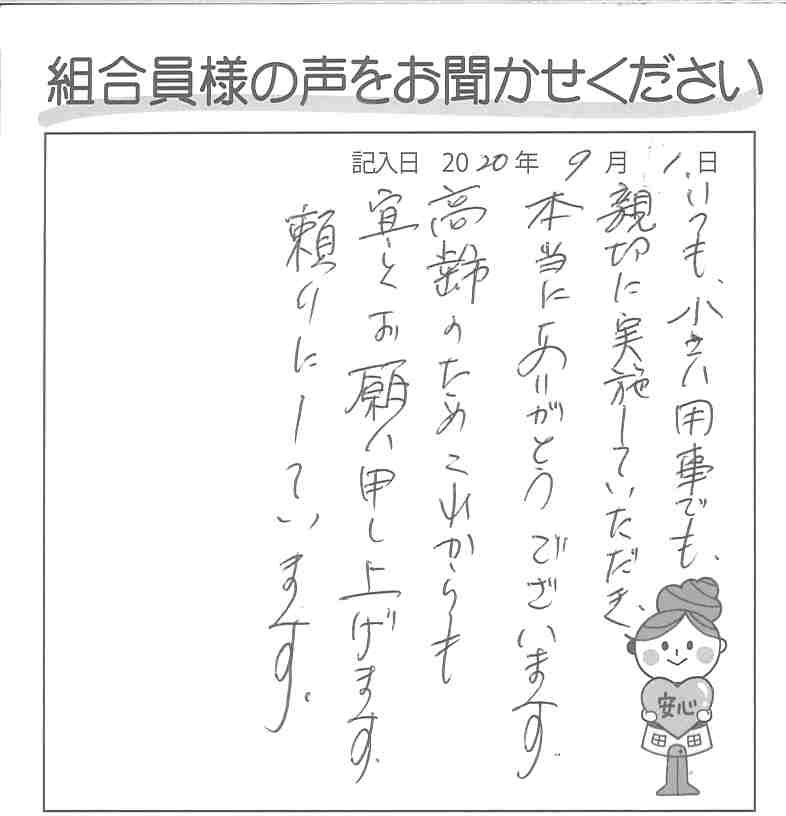 組合員様の声をお聞かせください
記入日 2020年 9月 1日
いつも、小さい用事でも、
親切に実施していただき、
本当にありがとうございます。
高齢のためこれからも
宜しくお願い申し上げます。
頼りにしています。
安心